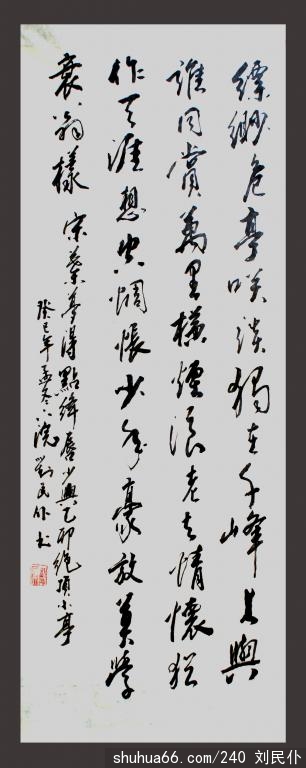 缥缈危亭咲谈獨在千峰上與
誰同賞萬里橫煙浪老去情懷犹
作天涯想空惆悵少年豪放莫學
衰翁樣 宋葉夢得點絳唇少興乙卯绝頂小亭
癸巳年孟冬浣劉民仆书
shuhua66.com/240 刘民仆